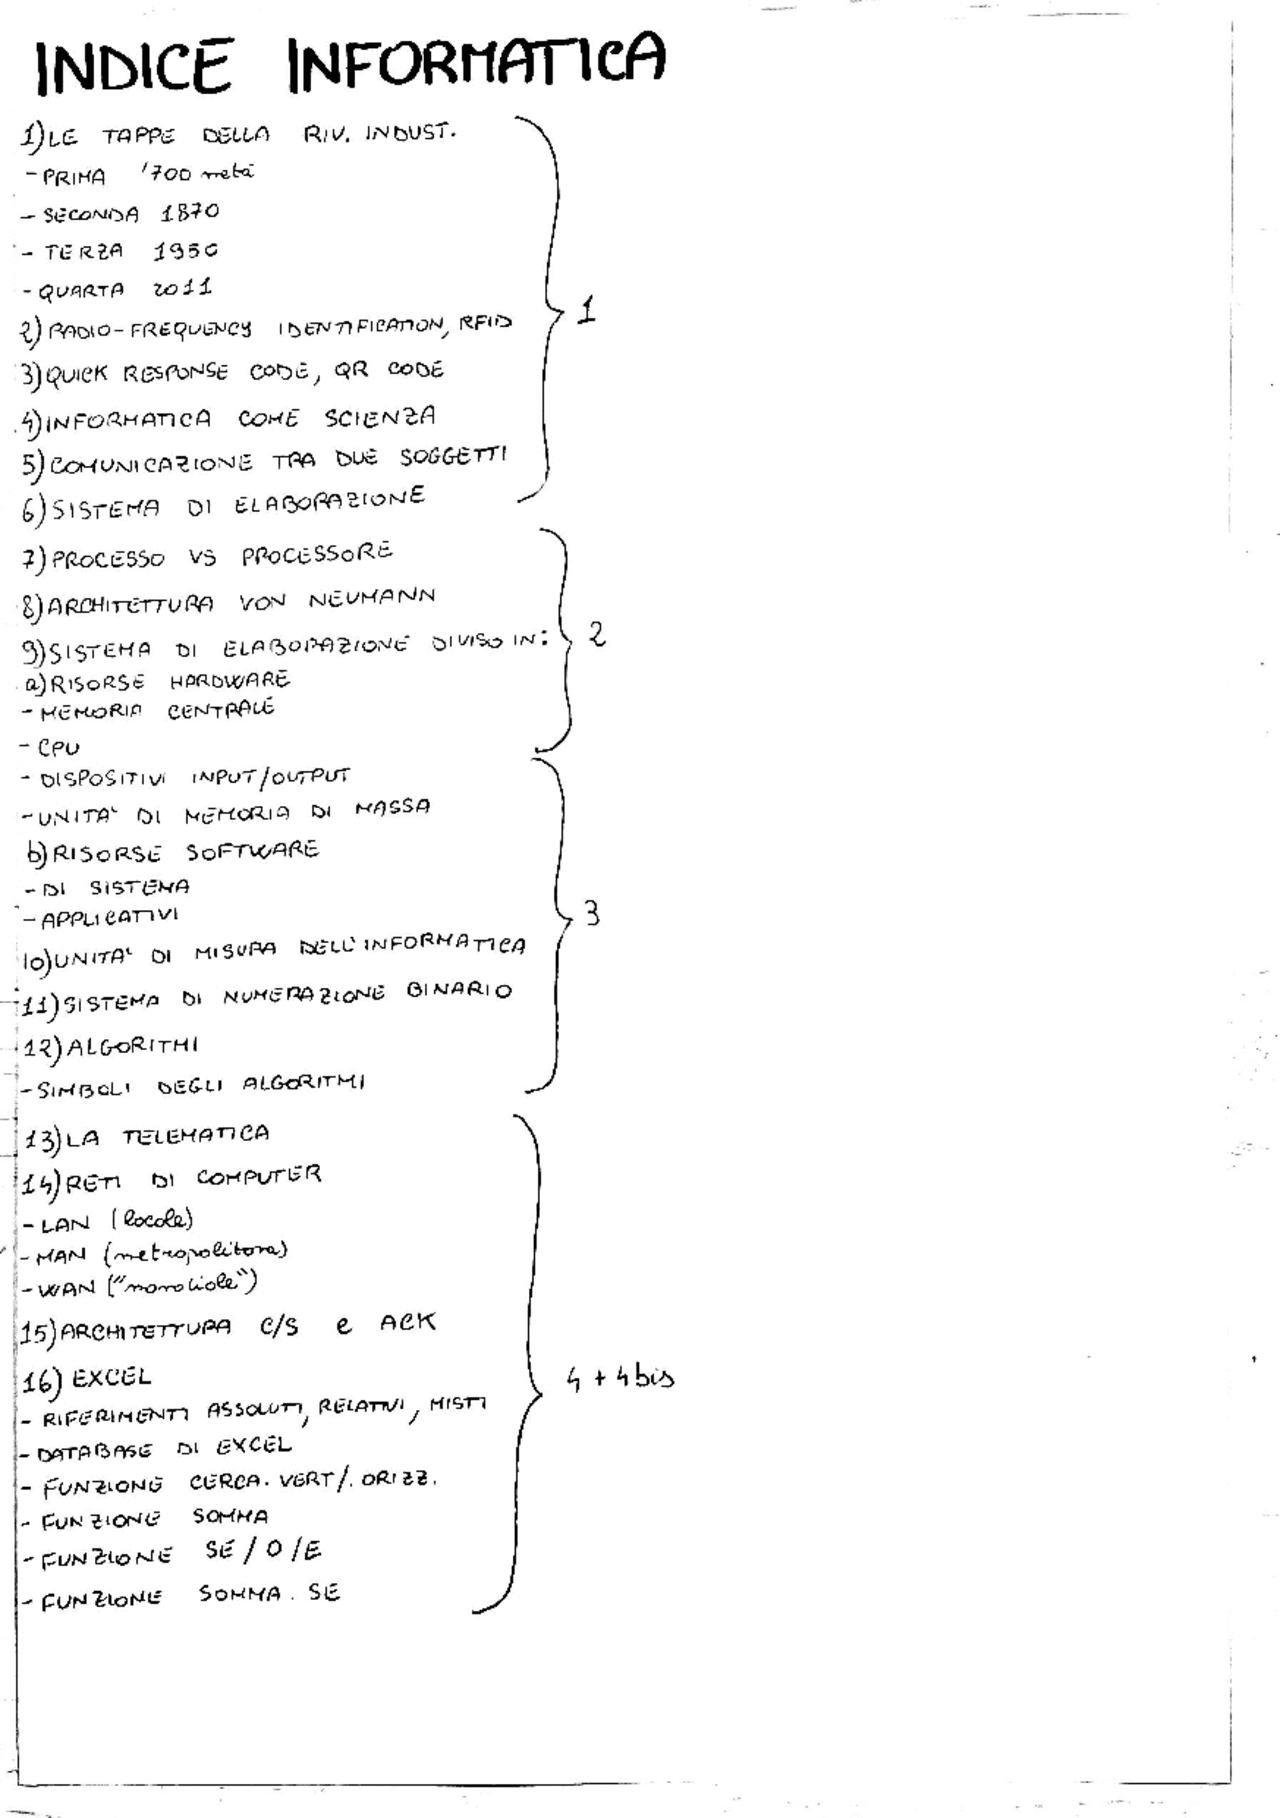 INDICE INFORMATICA
1) LE TAPPE DELLA RIV. INDUST.
- PRIMA '700 metà
- SECONDA 1870
- TERZA 1950
- QUARTA 2011
2) RADIO-FREQUENCY IDENTIFICATION, RFID
1
3) QUICK RESPONSE CODE, QR CODE
4) INFORMATICA COME SCIENZA
5) COMUNICAZIONE TRA DUE SOGGETTI
6) SISTEMA DI ELABORAZIONE
7) PROCESSO VS PROCESSORE
8) ARCHITETTURA VON NEUMANN
9) SISTEMA DI ELABORAZIONE DIVISO IN:
2
a) RISORSE HARDWARE
- MEMORIA CENTRALE
- CPU
- DISPOSITIVI INPUT/OUTPUT
- UNITA' DI MEMORIA DI MASSA
b) RISORSE SOFTWARE
- DI SISTEMA
- APPLICATIVI
3
10) UNITA' DI MISURA DELL'INFORMATICA
11) SISTEMA DI NUMERAZIONE BINARIO
12) ALGORITMI
- SIMBOLI DEGLI ALGORITMI
13) LA TELEMATICA
14) RETI DI COMPUTER
- LAN (locale)
- MAN (metropolitana)
- WAN ("mondiale")
15) ARCHITETTURA C/S e ACK
16) EXCEL
4 + 4 bis
- RIFERIMENTI ASSOLUTI, RELATIVI, MISTI
- DATABASE DI EXCEL
- FUNZIONE CERCA. VERT/. ORIZZ.
- FUNZIONE SOMMA
- FUNZIONE SE / O / E
- FUNZIONE SOMMA . SE